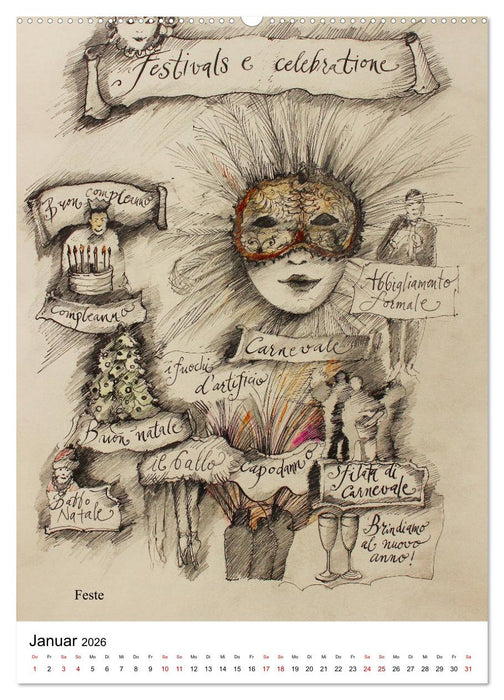 Festivals e celebratione
Buon compleanno
compleanno
Abbigliamento
formale
Carnevale
i fuochi
d'artificio
Buon natale
il ballo
Capodanno
Sfilata di
Carnevale
Babbo
Natale
Brindiamo
al nuovo
anno!
Feste
Januar 2026
Do Fr Sa So Mo Di Mi Do Fr Sa So Mo Di Mi Do Fr Sa So Mo Di Mi Do Fr Sa So Mo Di Mi Do Fr Sa
1 2 3 4 5 6 7 8 9 10 11 12 13 14 15 16 17 18 19 20 21 22 23 24 25 26 27 28 29 30 31